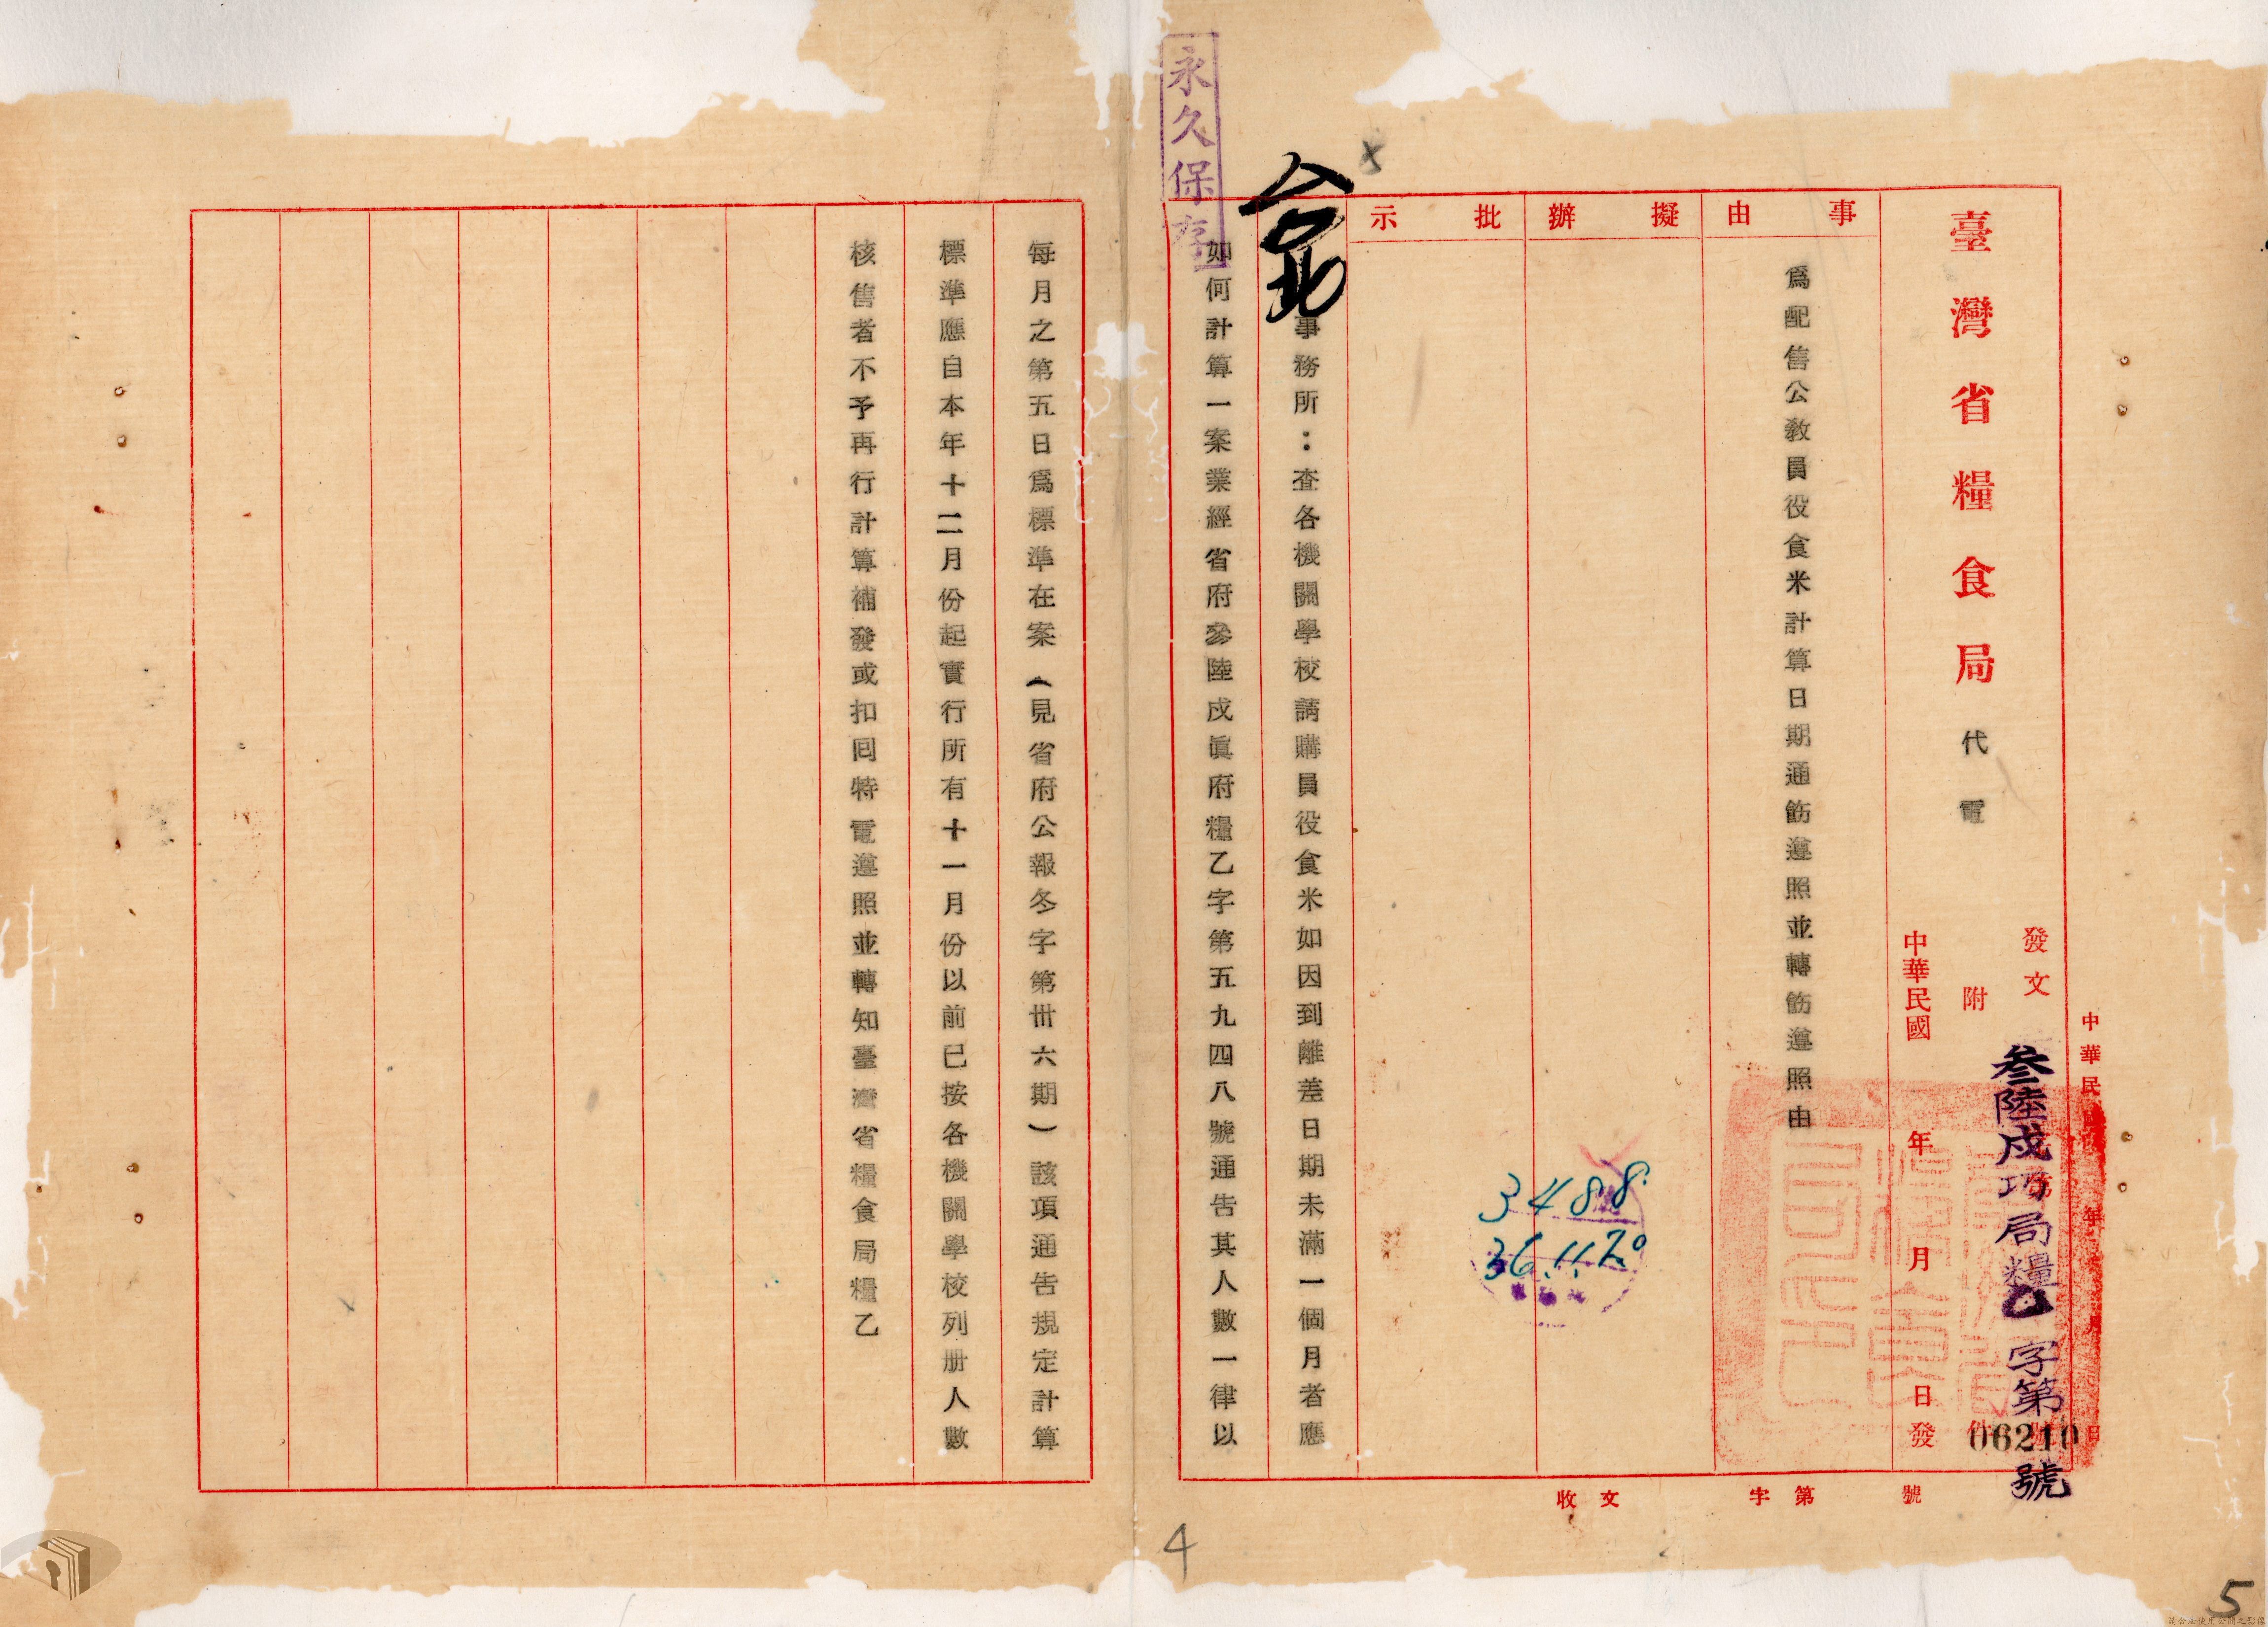 永久保存
臺灣省糧食局 代電
發文 叁陸戍巧局糧乙字第06210號
附
中華民國 年 月 日發
事由
擬辦
批示
為配售公教員役食米計算日期通飭遵照並轉飭遵照由
3488.
36.11.20
台北事務所：查各機關學校請購員役食米如因到離差日期未滿一個月者應
如何計算一案業經省府參陸戍眞府糧乙字第五九四八號通告其人數一律以
每月之第五日為標準在案（見省府公報冬字第卅六期）該項通告規定計算
標準應自本年十二月份起實行所有十一月份以前已按各機關學校列册人數
核售者不予再行計算補發或扣囘特電遵照並轉知臺灣省糧食局糧乙
收文 字第 號
4
5